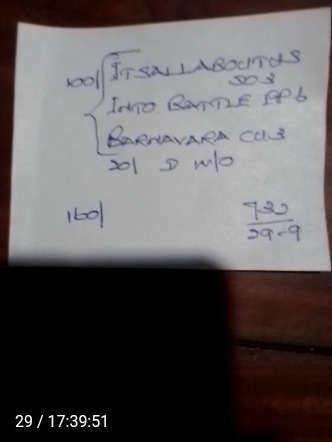 100/ ITSALLABOUTUS
SO3
INTO BATTLE PP6
BARNAVARA CU3
20/ D W/O
160/ 732
29-9
29 / 17:39:51